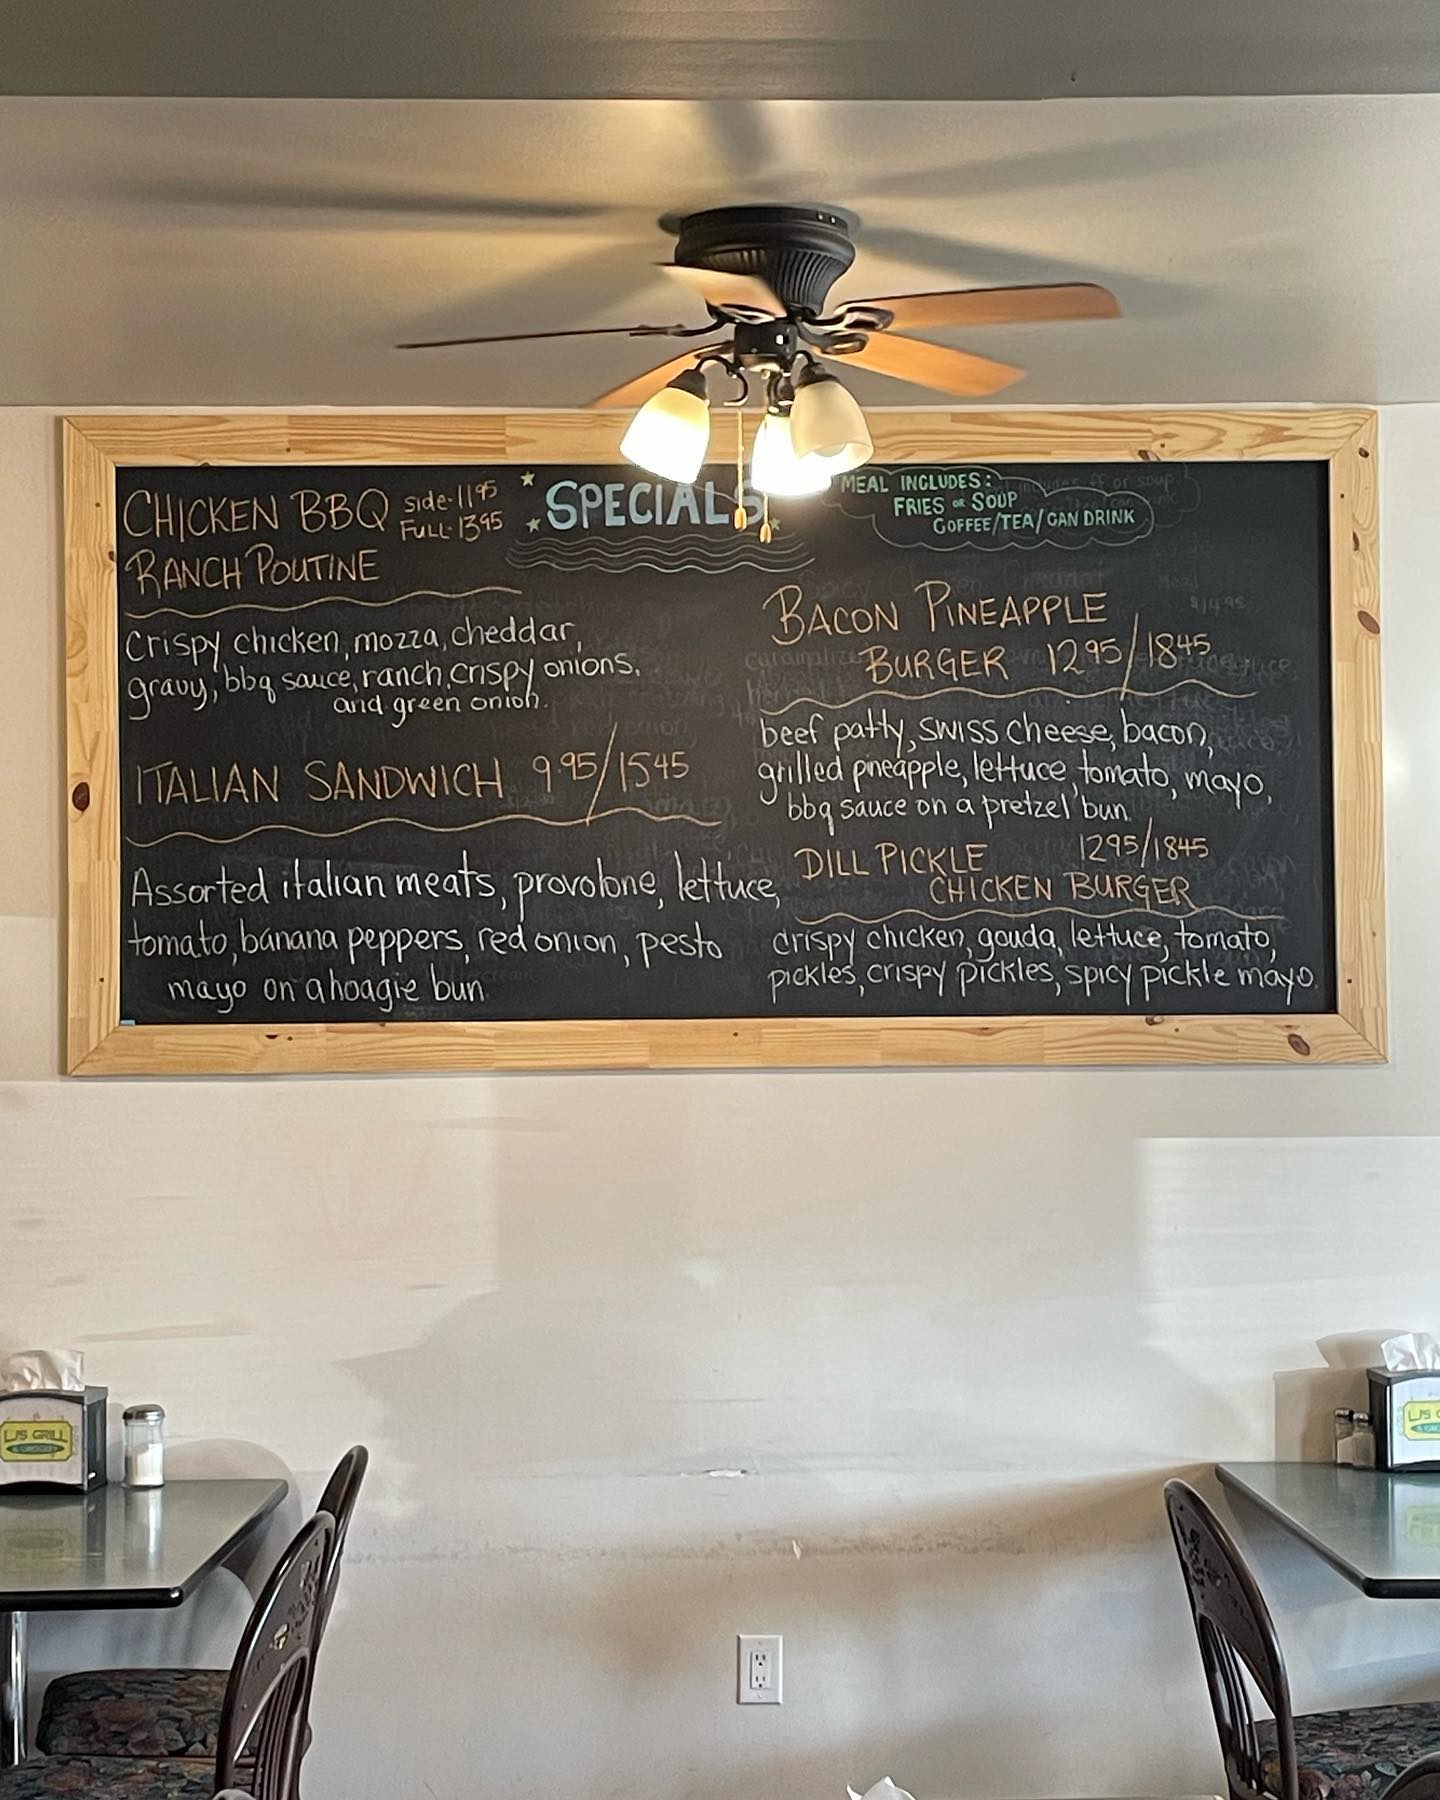 CHICKEN BBQ side-11.95
FULL-13.95
RANCH POUTINE
Crispy chicken, mozza, cheddar,
gravy, bbq sauce, ranch, crispy onions,
and green onion.
ITALIAN SANDWICH 9.95/15.45
Assorted italian meats, provolone, lettuce,
tomato, banana peppers, red onion, pesto
mayo on a hoagie bun.
SPECIALS
MEAL INCLUDES:
FRIES OR SOUP
COFFEE/TEA/CAN DRINK
BACON PINEAPPLE
BURGER 12.95/18.45
beef patty, swiss cheese, bacon,
grilled pineapple, lettuce, tomato, mayo,
bbq sauce on a pretzel bun.
DILL PICKLE 12.95/18.45
CHICKEN BURGER
crispy chicken, gouda, lettuce, tomato,
pickles, crispy pickles, spicy pickle mayo.
LJ'S GRILL
LJ'S G